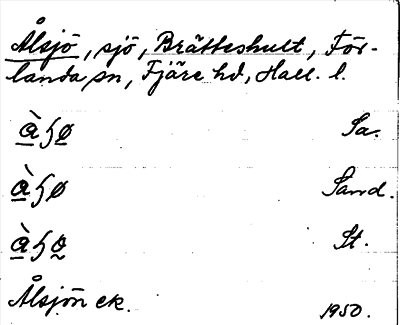 Ålsjö, sjö, Brätteshult, För-
landa sn, Fjäre hd, Hall. l.
Sa.
Sand.
St.
Ålsjön ek.
1950.